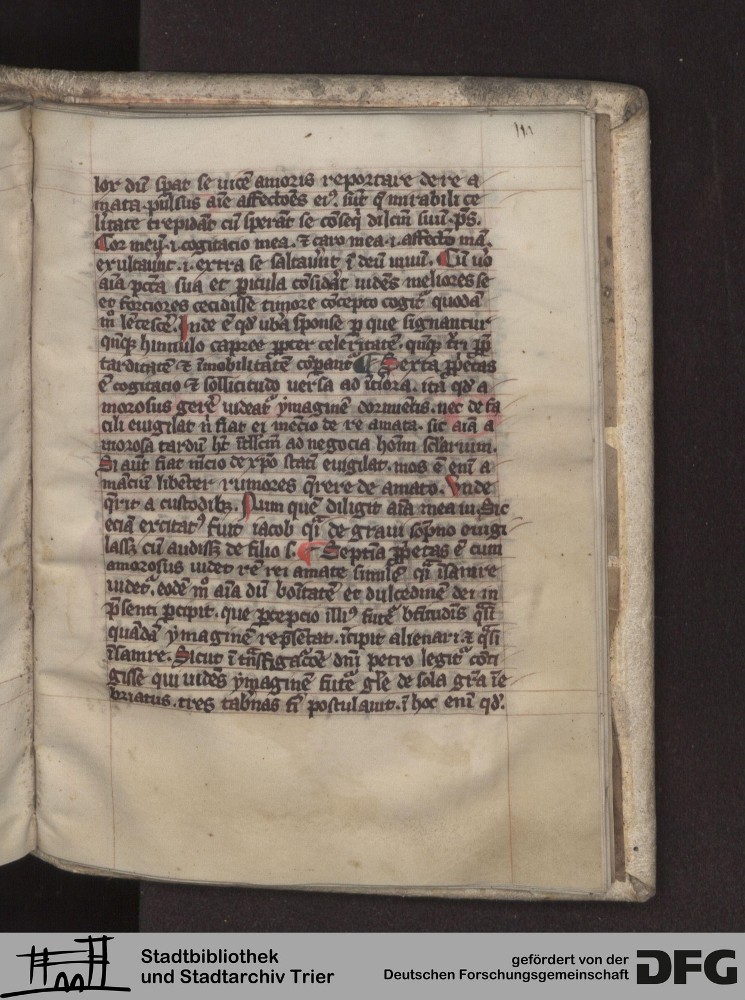 lor dū sperat se uicē amoris reportare de re a
mata. pulsus aīe affectōes eiꝰ. sūt q̄ mirabili ce
litate trepidāt cū sperāt se cōseq̄ dilcm̄ suū. ps̄.
Cor meū. i. cogitacio mea. ⁊ caro mea. i. affecto mā.
exultauīt. i. extra se saltauīt ī deū uiuū. Cū uo
aīa pccā sua et picula cōsidāt uidēs meliores se
et forciores cecidisse timore cōcepto cogit᷑ quodā
m̄ lētescē. Inde ē qd̛ ubera sponse p que signantur
quīqꝫ hinnulo capree ꝓpter celeritatē. quīqꝫ
tarditatē ⁊ īmobilitatē cōparāt᷑ Sexta ꝓpetas
ē cogitacio ⁊ sollicitudo uersa ad īteriora. itā qd̛ a
morosus gerē uideat᷑ ymaginē dormiētis. nec de fa
cili euigilat n̄ fiat ei mēcio de re amata. sic aīa a
morosa tardū ht̄ ītllcm̄ ad negocia hom̄ sclarium.
Si aūt fiat mēcio de xp̄o statī euigilat. mos ē enī a
māciū libēter rumores q̄rere de amato. Vnde
q̄rit a custodibꝫ. Num quē diligit aīa mea
eciā excitatꝰ fuit iacob q̄i de graui sopno euigi
lassꝫ cū audissꝫ de filio s. Septīa ꝓpetas ē cum
amorosus uidet rē rei amate similē q̄i īsanire
uidet᷑. eodē m̄ aīa dū boītatē et dulcedinē dei in
p̄senti pcipit. que pcepcio illiꝰ futē btitudīs q̄si
quādā ymaginē rep̄sētat. īcipit alienari ⁊ q̄si
īsanire. Sicut ī trāsfigacōē dn̄i petro legit᷑ cōti
gisse qui uidēs ymaginē futē gl̄e de sola gr̄a īe
briatus. tres tab̄nas postulauit. ī hoc enī qd̛.
Stadtbibliothek
und Stadtarchiv Trier
gefördert von der
Deutschen Forschungsgemeinschaft
DFG